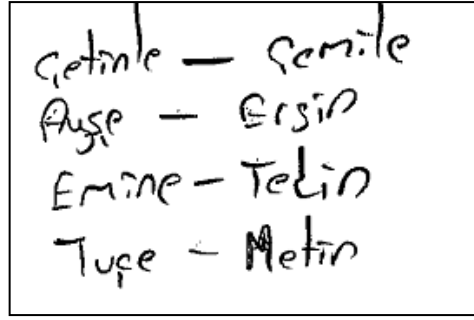 Çetinle – Çemile
Ayşe – Ersin
Emine – Tekin
Tuçe – Metin